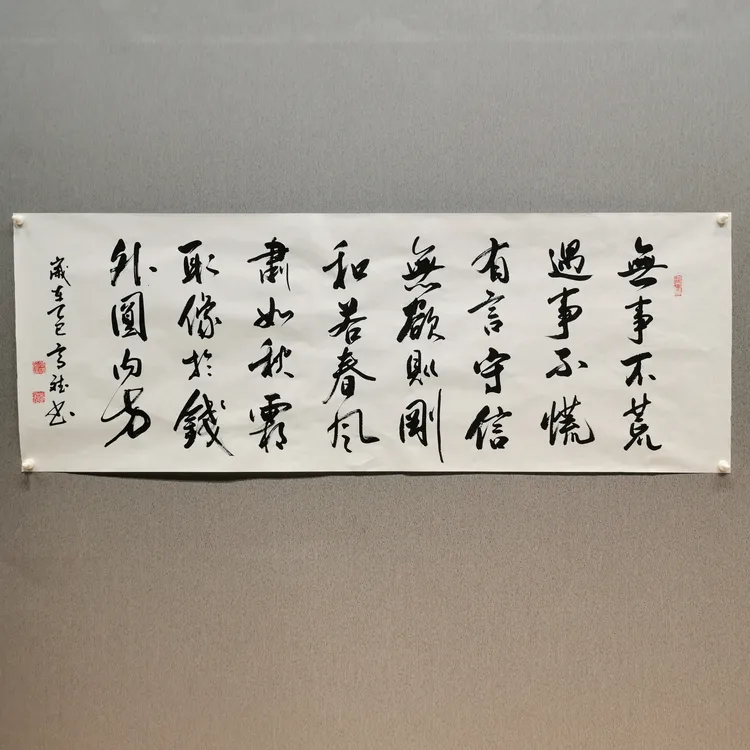 無事不荒
遇事不慌
有言守信
無欲則剛
和若春風
肅如秋霜
取像於錢
外圓内方
歲在乙巳高書